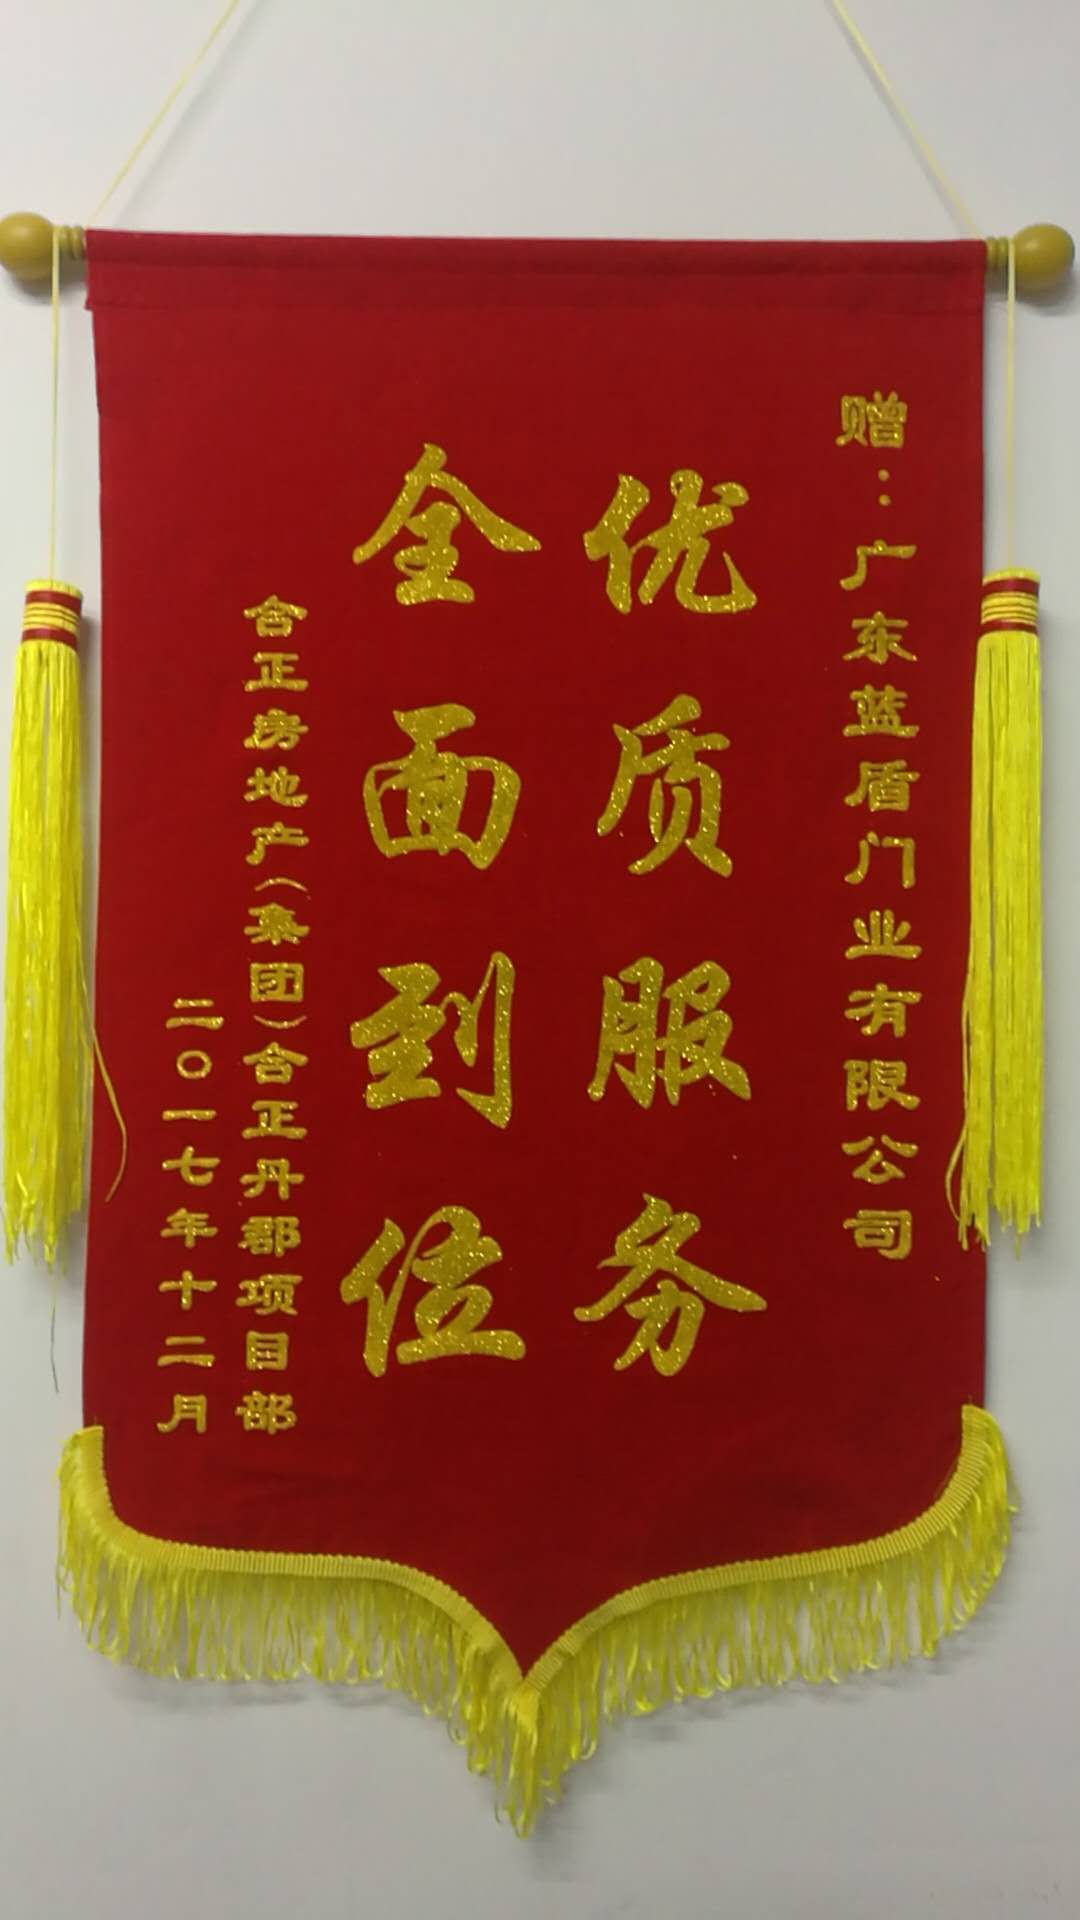 赠：广东蓝盾门业有限公司
优质服务
全面到位
合正房地产(集团)合正丹郡项目部
二〇一七年十二月